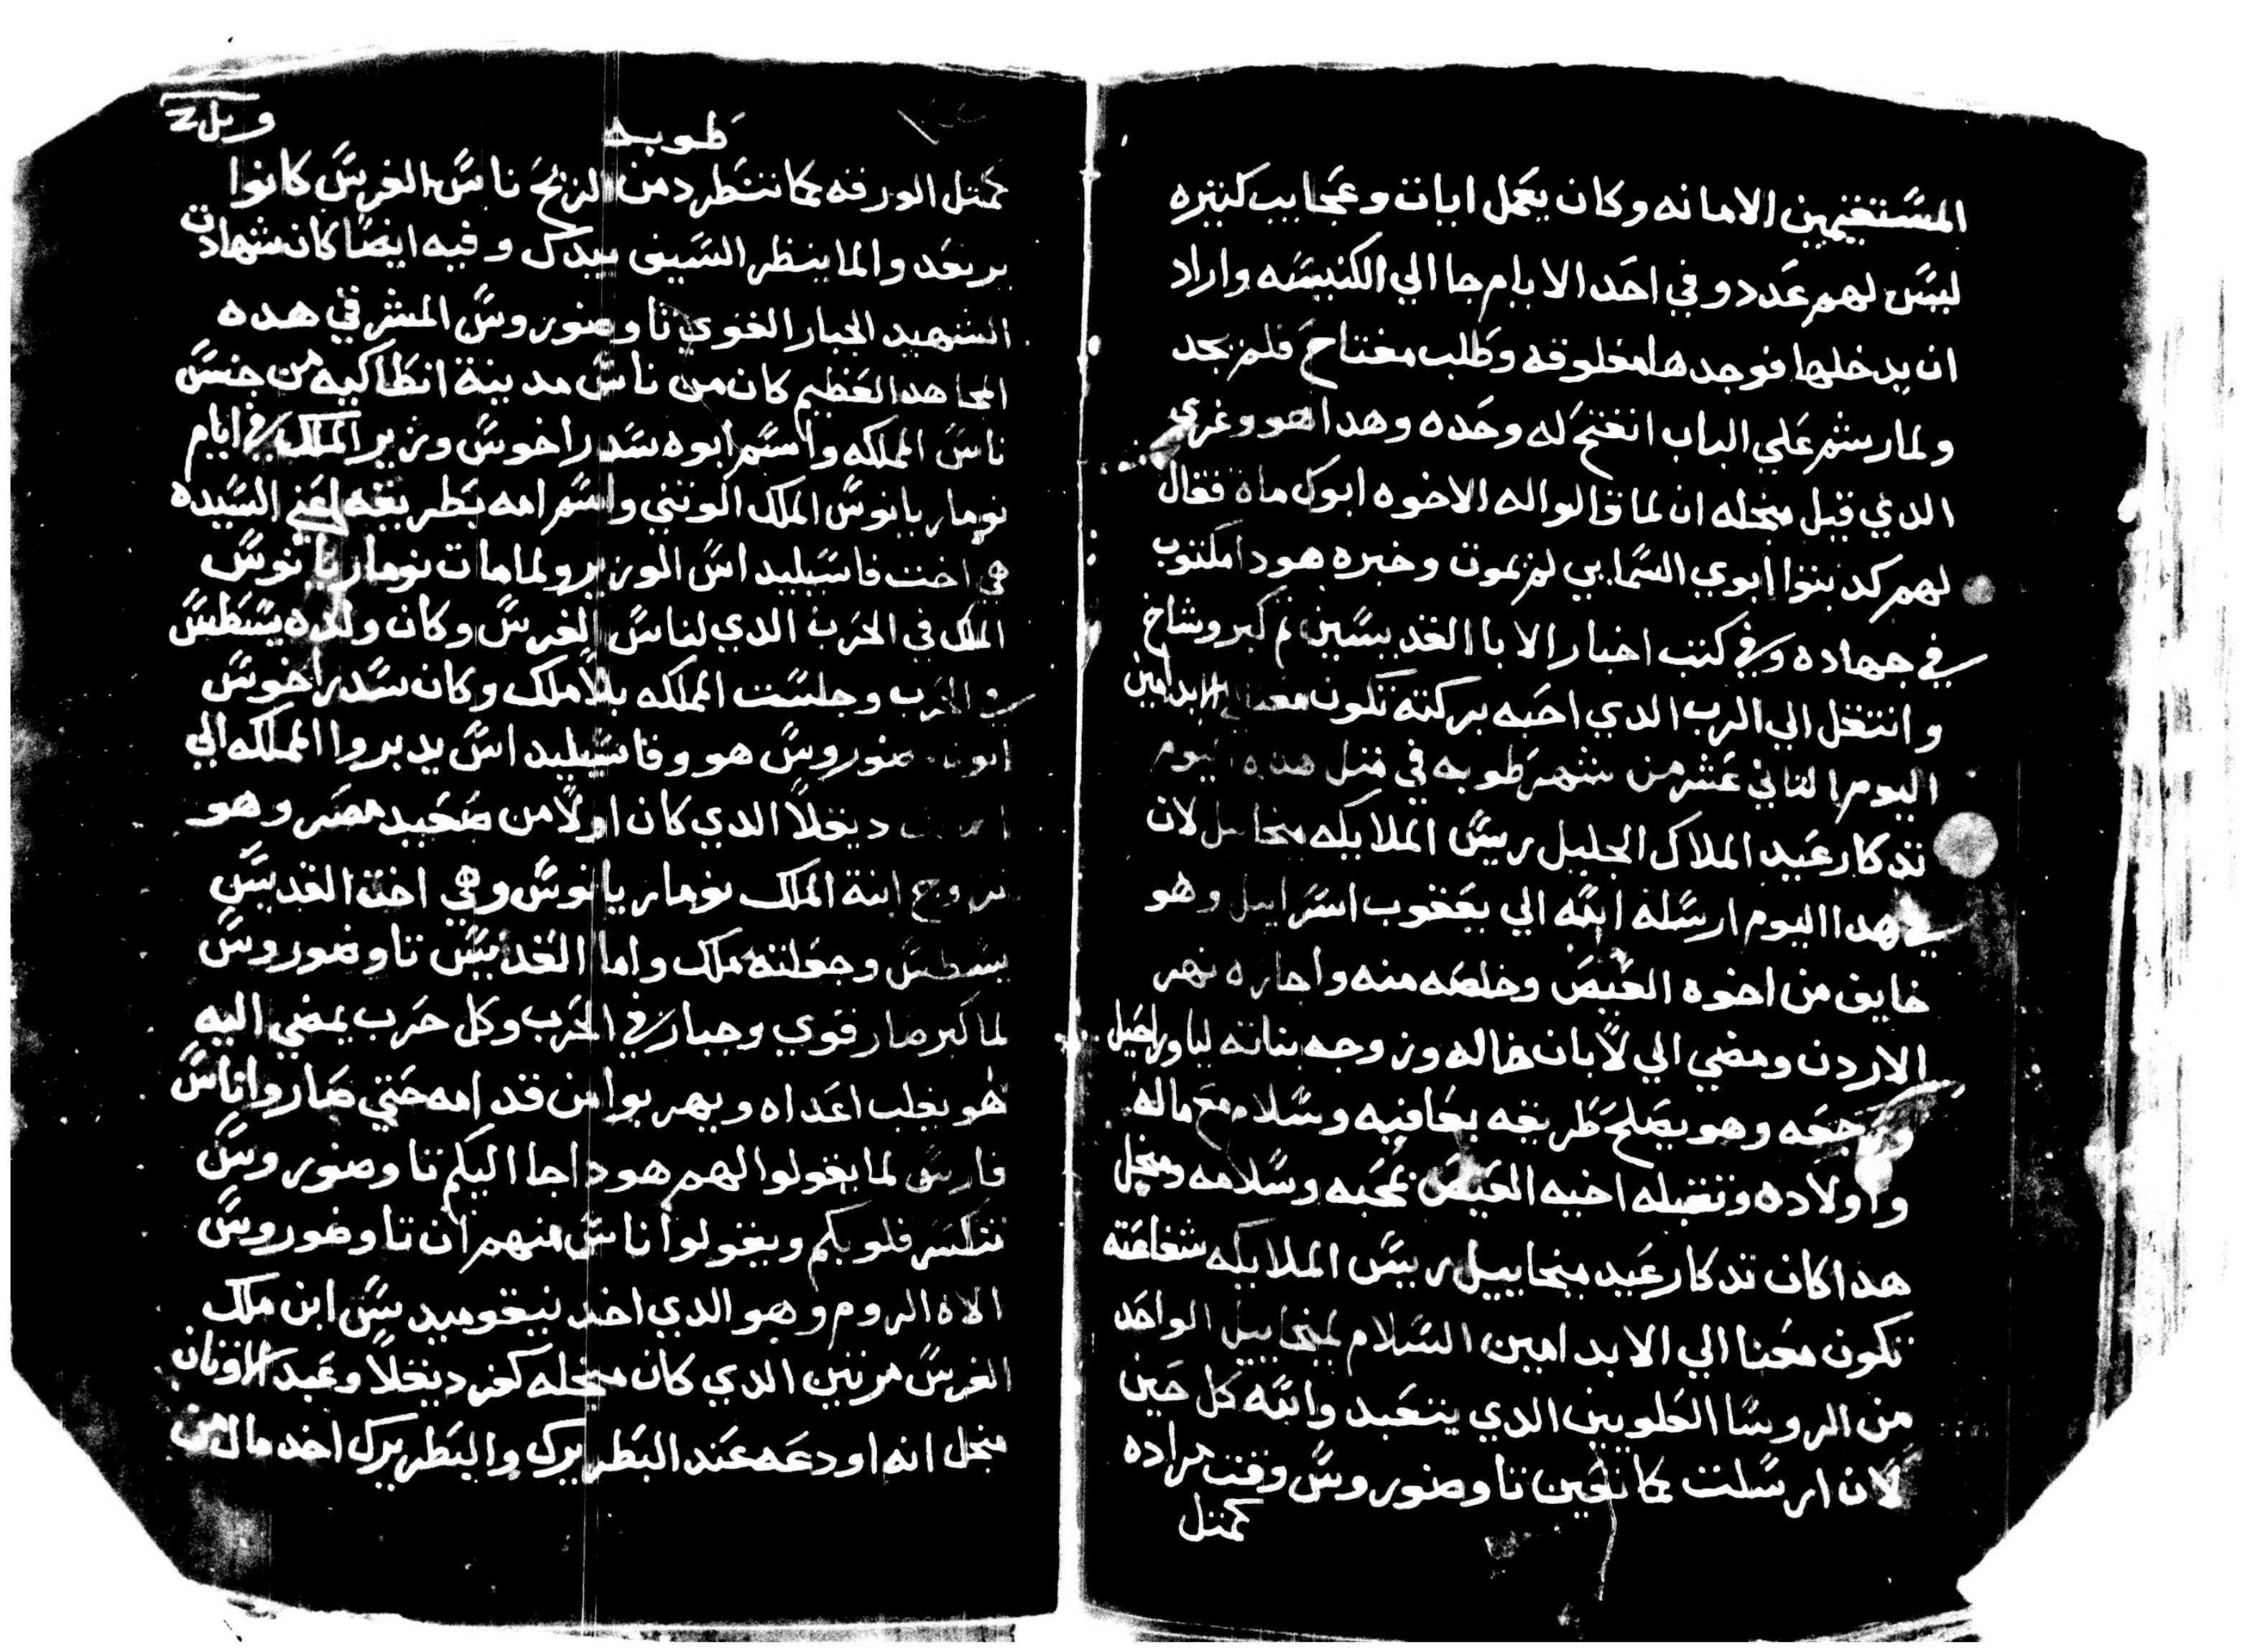 المستقيمين الامانه وكان يعمل ايات وعجايب كتيره
ليس لهم عدد وفي احد الايام جا الي الكنيسه واراد
ان يدخلها فوجدها مغلوقه وطلب مفتاح فلم يجد
ولما رشم علي الباب انفتح له وحده وهدا هو وغري
الدي قيل منجله ان لما قالوا له الاخوه ابوك مات فقال
لهم كدبتوا ابوي السمايي لم يموت وخبره هودا مكتوب
في جهاده وفي كتب اخبار الابا القديسين تم كبر وشاخ
وانتقل الي الرب الدي احبه بركته تكون معنا الي الابد امين
اليوم التاني عشر من شهر طوبه في متل هده اليوم
تدكار عيد الملاك الجليل ريس الملايكه ميخاييل لان
في هدا اليوم ارسله الله الي يعقوب اسراييل وهو
خايف من اخوه العيص وخلصه منه واجازه نهر
الاردن ومضي الي لابان خاله وزوجه بناته ليا وراحيل
ورجعه وهو يصلح طريقه بعافيه وسلام مع ماله
واولاده وتقبله اخيه العيص بمحبه وسلامه ومنجل
هدا كان تدكار عيد ميخاييل ريس الملايكه شفاعته
تكون معنا الي الابد امين السلام لميخاييل الواحد
من الروسا العلويين الدي يتعبد والله كل حين
لان ارسلت كما تعين تاوضوروس وقت مراده
كمتل
طوبه
كمتل الورقه كما تنطرد من الريح ناس الفرس كانوا
يرتعد والما ينظر السيف بيدك وفيه ايضا كان شهادت
الشهيد الجبار القوي تاوضوروس المشرقي هده
المجاهد العظيم كان من ناس مدينة انطاكيه من جنس
ناس المملكه واسم ابوه سدراخوس وزير الملك في ايام
نوماريانوس الملك الوتني واسم امه بطريقه اعني السيده
هي اخت فاسيليداس الوزير ولما مات نوماريانوس
الملك في الحرب الدي لناس الفرس وكان ولده يسطس
في الحرب وجلست المملكه بلا ملك وكان سدراخوس
ابو تاوضوروس هو وفاسيليداس يدبروا المملكه الي
دیقلا الدي كان اولا من صعيد مصر وهو
تزوج ابنة الملك نوماريانوس وهي اخت القديس
يسطس وجعلته ملك واما القديس تاوضوروس
لما كبر صار قوي وجبار في الحرب وكل حرب يمضي اليه
هو يغلب اعداه ويهربوا من قدامه حتي صاروا ناس
فارس لما يقولوا لهم هودا جا اليكم تاوضوروس
تنكسر قلوبكم ويقولوا ناس منهم ان تاوضوروس
الاه الروم وهو الدي اخد نيقوميديس ابن ملك
الفرس مرتين الدي كان منجله كفر ديقلا وعبد الاوتان
منجل انه اودعه عند البطريرك والبطريرك اخد مال من